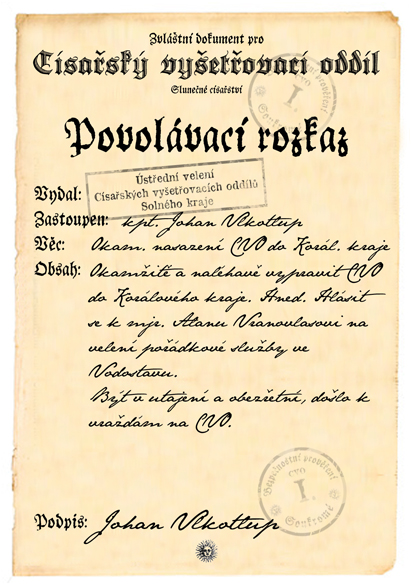 Zvláštní dokument pro
Císařský vyšetřovací oddíl
Slunečné císařství
Povolávací rozkaz
Ústřední velení
Císařských vyšetřovacích oddílů
Solného kraje
Vydal:
Zastoupen: kpt. Johan Vlkottup
Věc: Okam. nasazení CVO do Korál. kraje
Obsah: Okamžitě a naléhavě vypravit CVO
do Korálového kraje. Hned. Hlásit
se k mjr. Alanu Vranovlasovi na
velení pořádkové služby ve
Vodostavu.
Být v utajení a obezřetní, došlo k
vraždám na CVO.
Bezpečnostní prověření
CVO
I.
Soukromé
Podpis: Johan Vlkottup